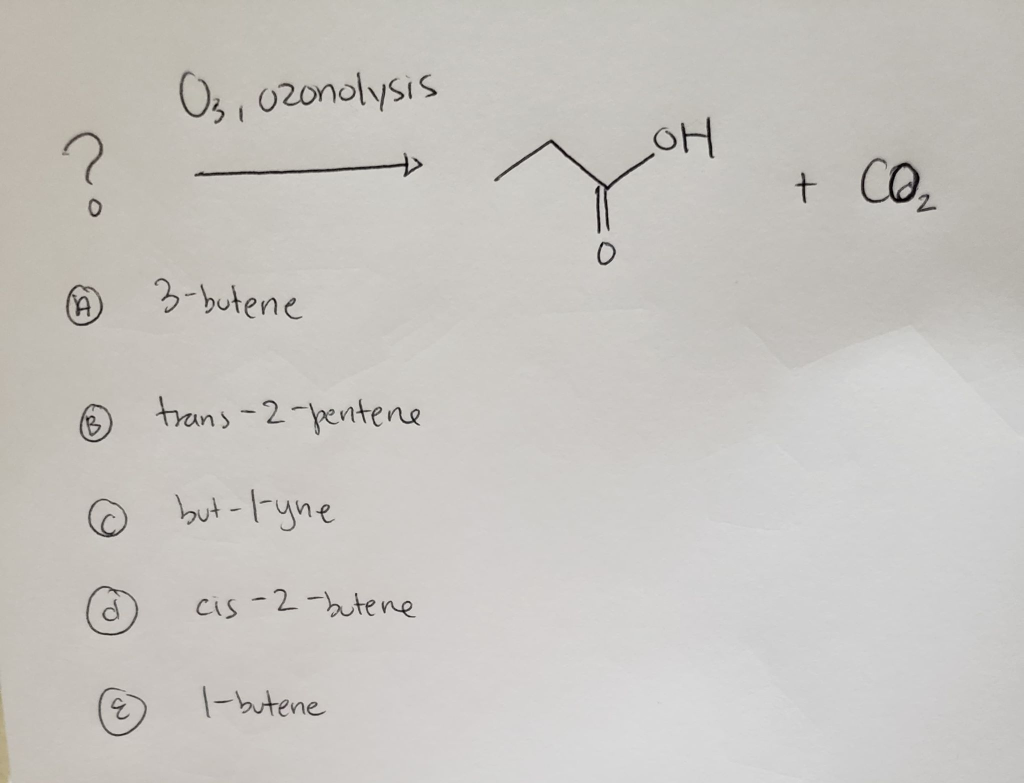 O₃, ozonolysis
? OH
+ CO₂
O
(A) 3-butene
(B) trans-2-pentene
(C) but-1-yne
(d) cis-2-butene
(E) 1-butene